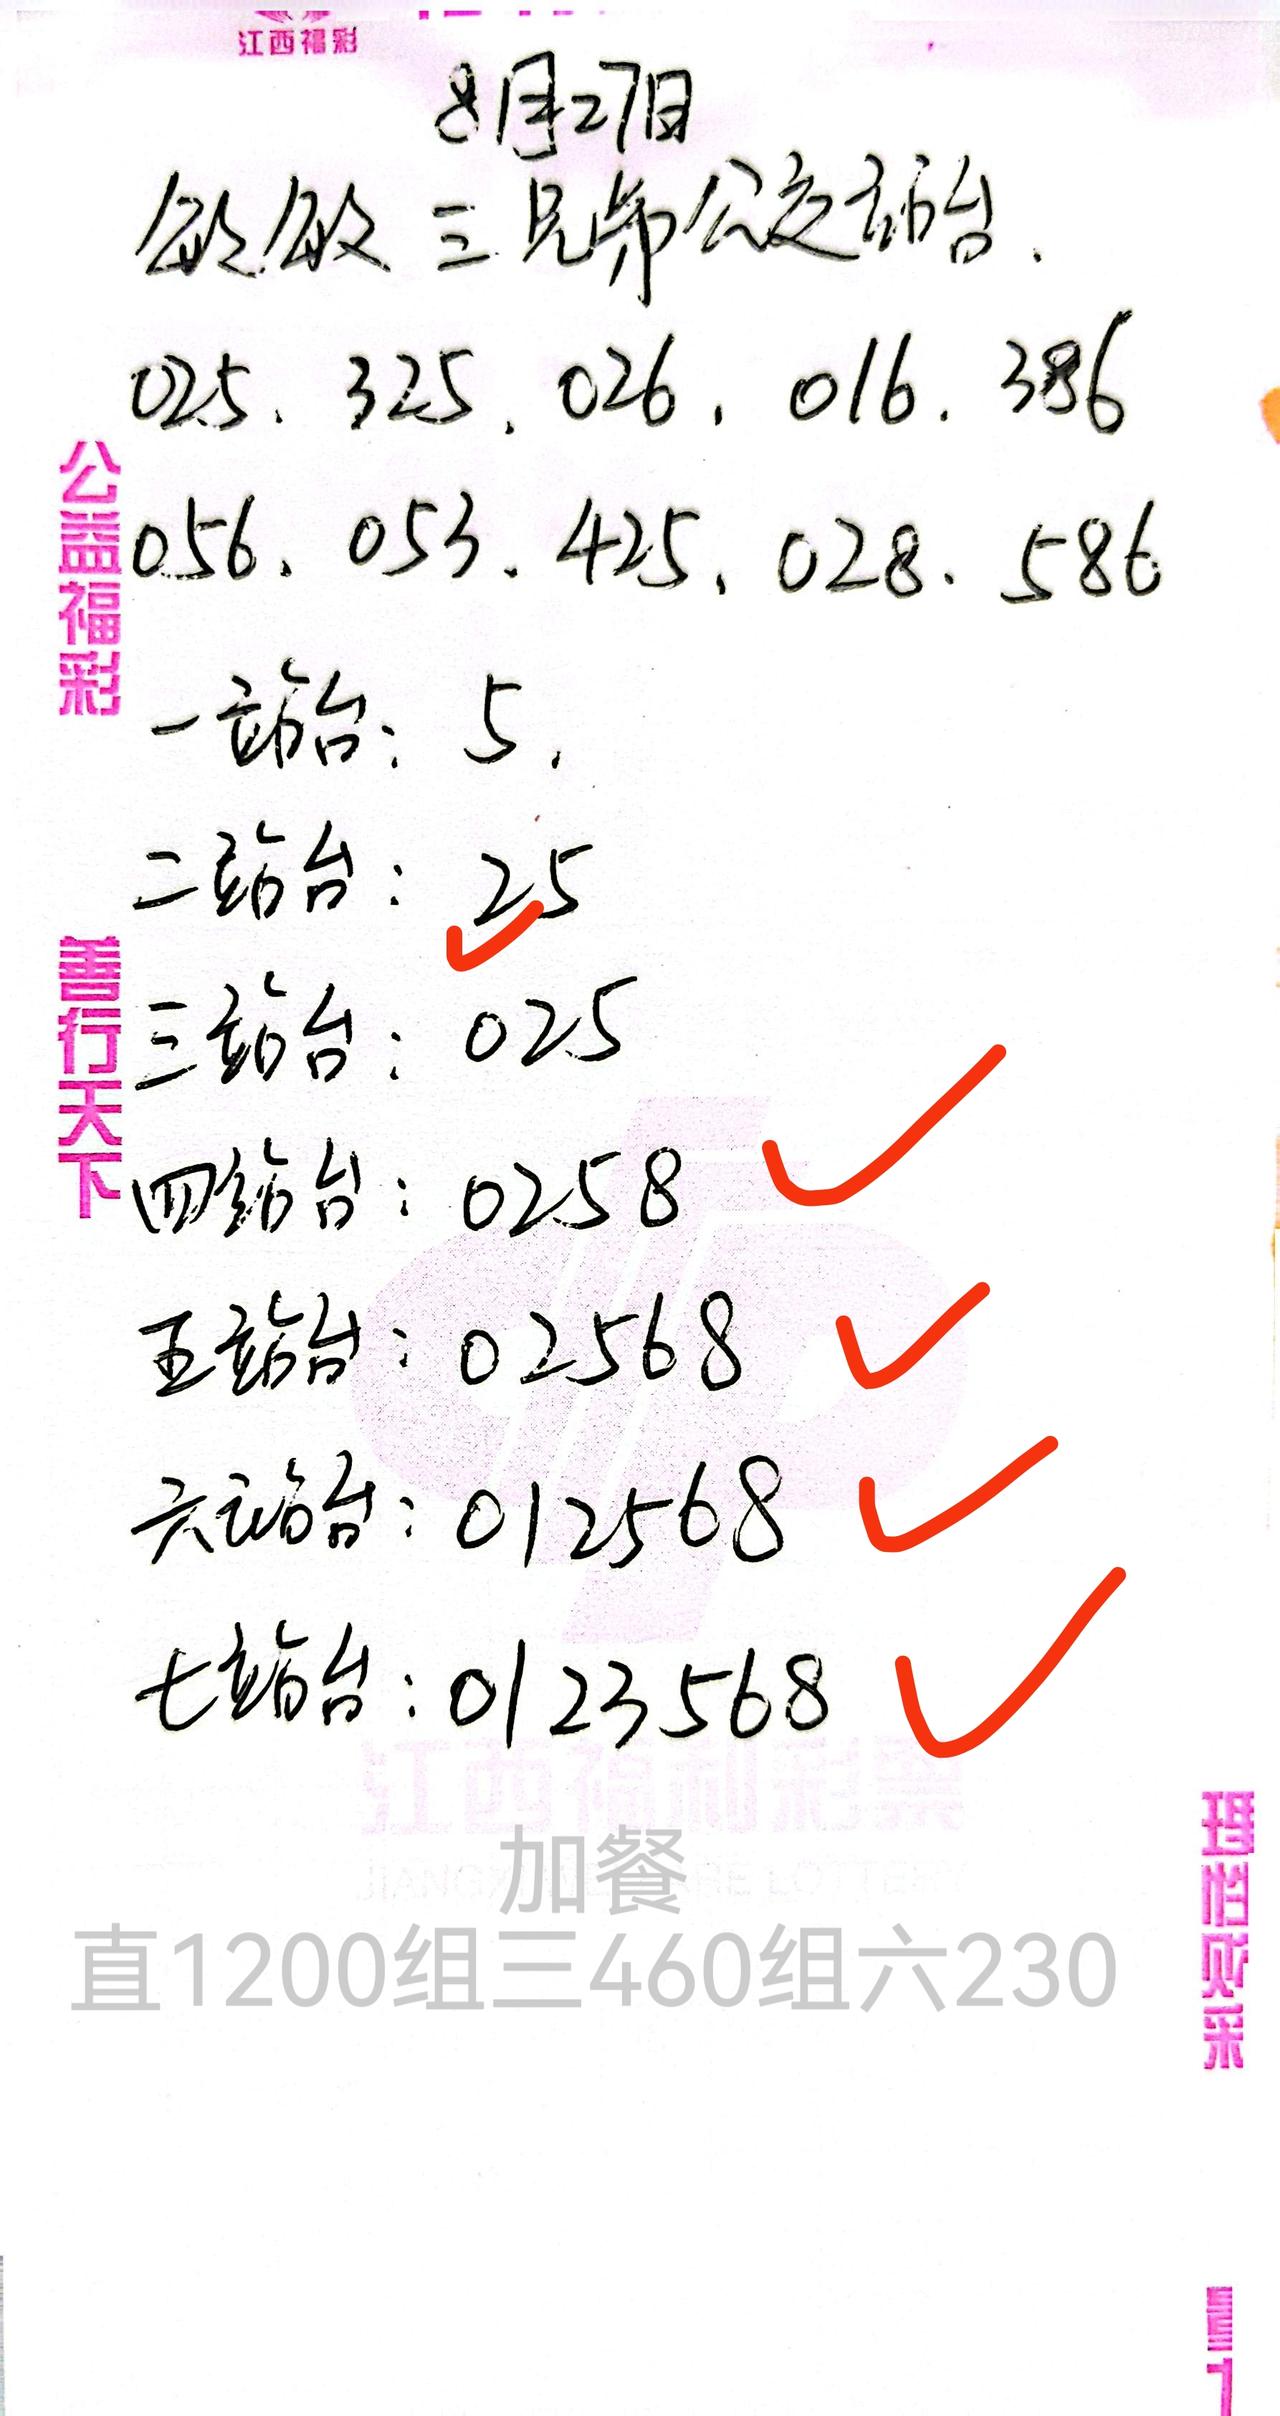 江西福彩
8月27日
敏敏三兄弟公交站台.
025. 325. 026. 016. 386
056. 053. 425. 028. 586
一站台: 5.
二站台: 25
三站台: 025
四站台: 0258
五站台: 02568
六站台: 012568
七站台: 0123568
公益福彩
善行天下
江西福利彩票
加餐
直1200组三460组六230